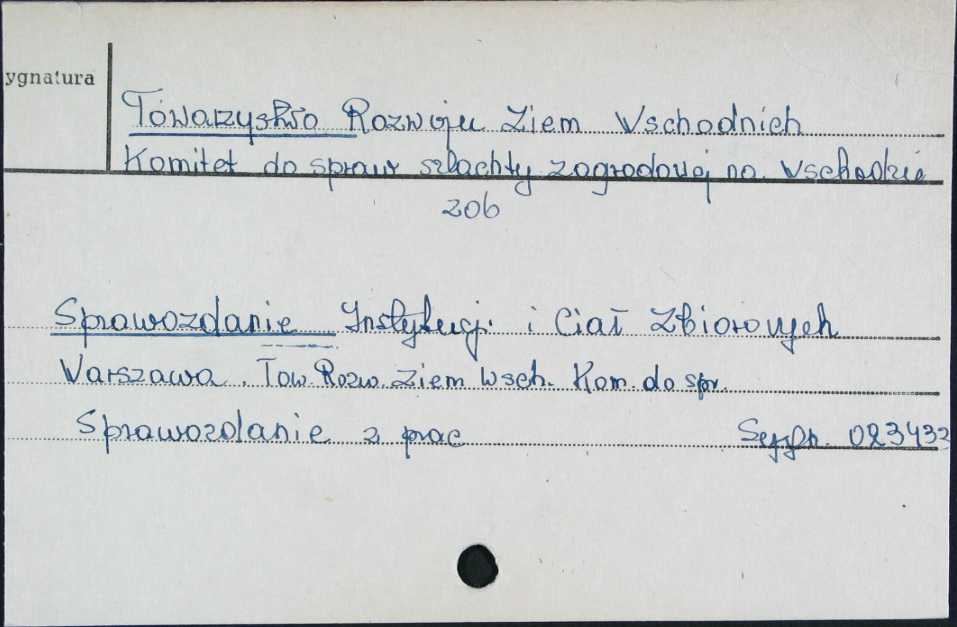 ygnatura
Towarzystwo Rozwoju Ziem Wschodnich
Komitet do spraw szlachty zagrodowej na Wschodzie
zob
Sprawozdanie Instytucji i Ciał Zbiorowych
Warszawa. Tow. Rozw. Ziem Wsch. Kom. do spr.
Sprawozdanie z prac
023432